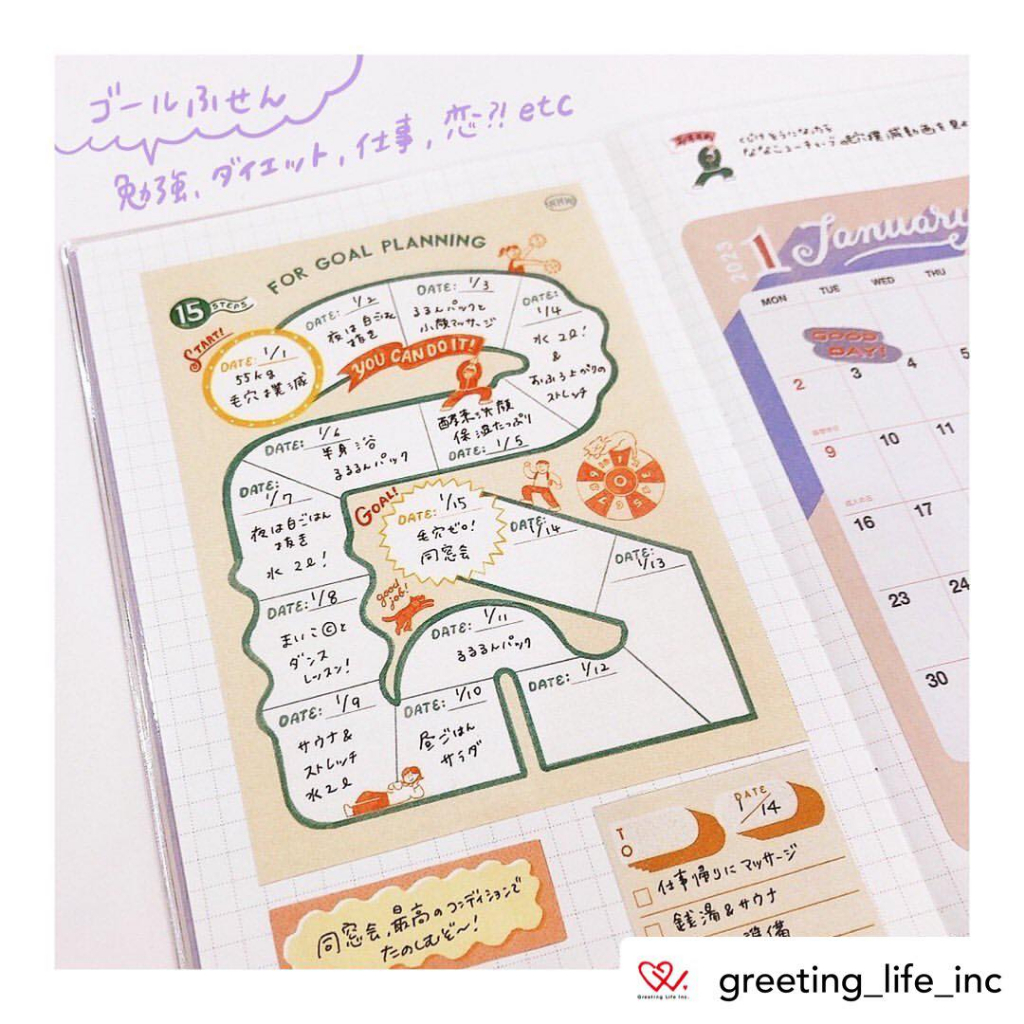 ゴールふせん
勉強、ダイエット、仕事、恋?! etc
FOR GOAL PLANNING
15 STEPS
START!
DATE: 1/1
55kg
毛穴撲滅
DATE: 1/2
夜は白ごはん
抜き
DATE: 1/3
るるんパックと
小顔マッサージ
DATE:
1/4
水2ℓ!
&
おふろ上がりの
ストレッチ
YOU CAN DO IT!
酵素洗顔
保湿たっぷり
DATE: 1/5
DATE: 1/6
半身浴
るるるんパック
DATE:
1/7
夜は白ごはん
抜き
水2ℓ!
DATE: 1/8
まいこ©と
ダンス
レッスン!
DATE: 1/9
サウナ&
ストレッチ
水2ℓ
DATE: 1/10
昼ごはん
サラダ
DATE: 1/11
るるるんパック
DATE: 1/12
DATE: 1/13
DATE: 1/14
GOAL!
DATE: 1/15
毛穴ゼロ!
同窓会
good
job!
同窓会、最高のコンディションで
たのしむぞ〜!
2023
1 January
MON TUE WED THU
GOOD
DAY!
2 3 4 5
9 10 11
16 17
23 24
30
TO
DATE
1/14
仕事帰りにマッサージ
銭湯&サウナ
準備
Greeting Life Inc.
greeting_life_inc